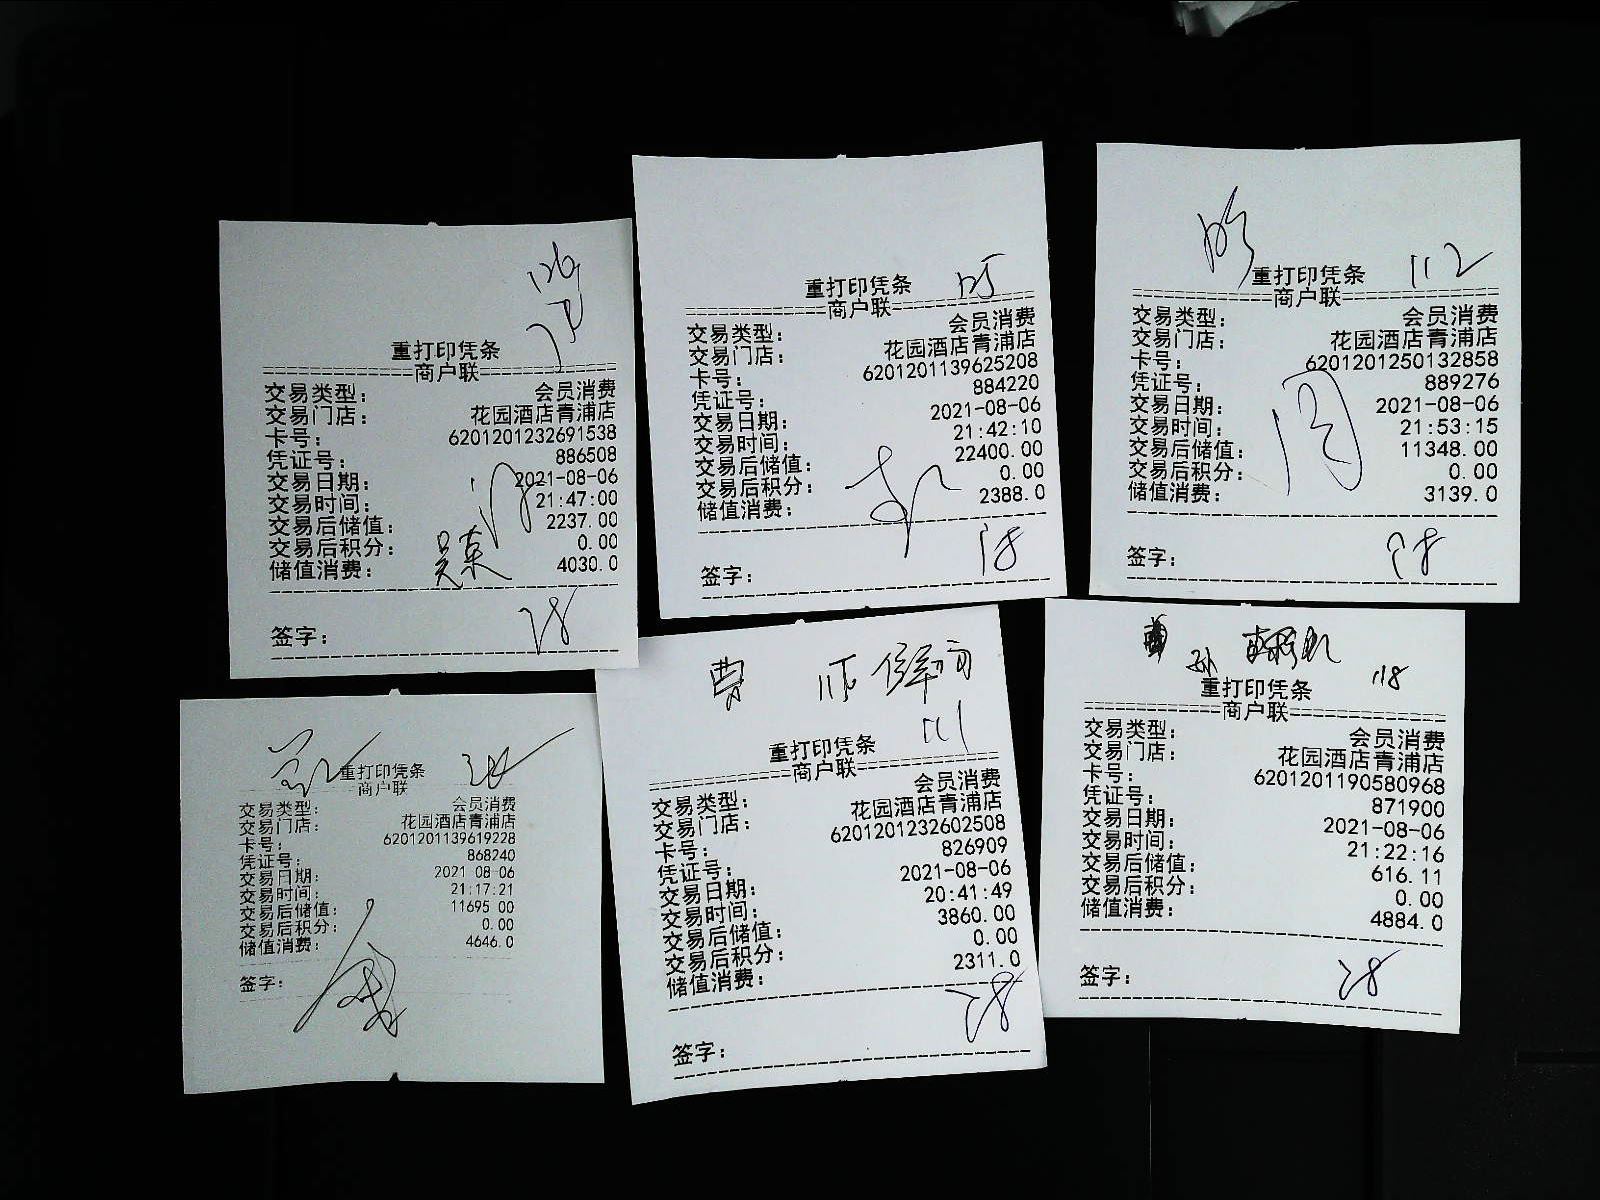 126
重打印凭条
商户联
交易类型: 会员消费
交易门店: 花园酒店青浦店
卡号: 6201201232691538
凭证号: 886508
交易日期: 2021-08-06
交易时间: 21:47:00
交易后储值: 2237.00
交易后积分: 0.00
储值消费: 4030.0
签字: 28
重打印凭条
商户联
交易类型: 会员消费
交易门店: 花园酒店青浦店
卡号: 6201201139625208
凭证号: 884220
交易日期: 2021-08-06
交易时间: 21:42:10
交易后储值: 22400.00
交易后积分: 0.00
储值消费: 2388.0
18
签字:
112
重打印凭条
商户联
交易类型: 会员消费
交易门店: 花园酒店青浦店
卡号: 6201201250132858
凭证号: 889276
交易日期: 2021-08-06
交易时间: 21:53:15
交易后储值: 11348.00
交易后积分: 0.00
储值消费: 3139.0
签字: 98
重打印凭条
商户联
交易类型: 会员消费
交易门店: 花园酒店青浦店
卡号: 6201201139619228
凭证号: 868240
交易日期: 2021 08-06
交易时间: 21:17:21
交易后储值: 11695 00
交易后积分: 0.00
储值消费: 4646.0
签字:
曹
111
重打印凭条
商户联
交易类型: 会员消费
交易门店: 花园酒店青浦店
卡号: 6201201232602508
凭证号: 826909
交易日期: 2021-08-06
交易时间: 20:41:49
交易后储值: 3860.00
交易后积分: 0.00
储值消费: 2311.0
28
签字:
孙 118
重打印凭条
商户联
交易类型: 会员消费
交易门店: 花园酒店青浦店
卡号: 6201201190580968
凭证号: 871900
交易日期: 2021-08-06
交易时间: 21:22:16
交易后储值: 616.11
交易后积分: 0.00
储值消费: 4884.0
签字: 28